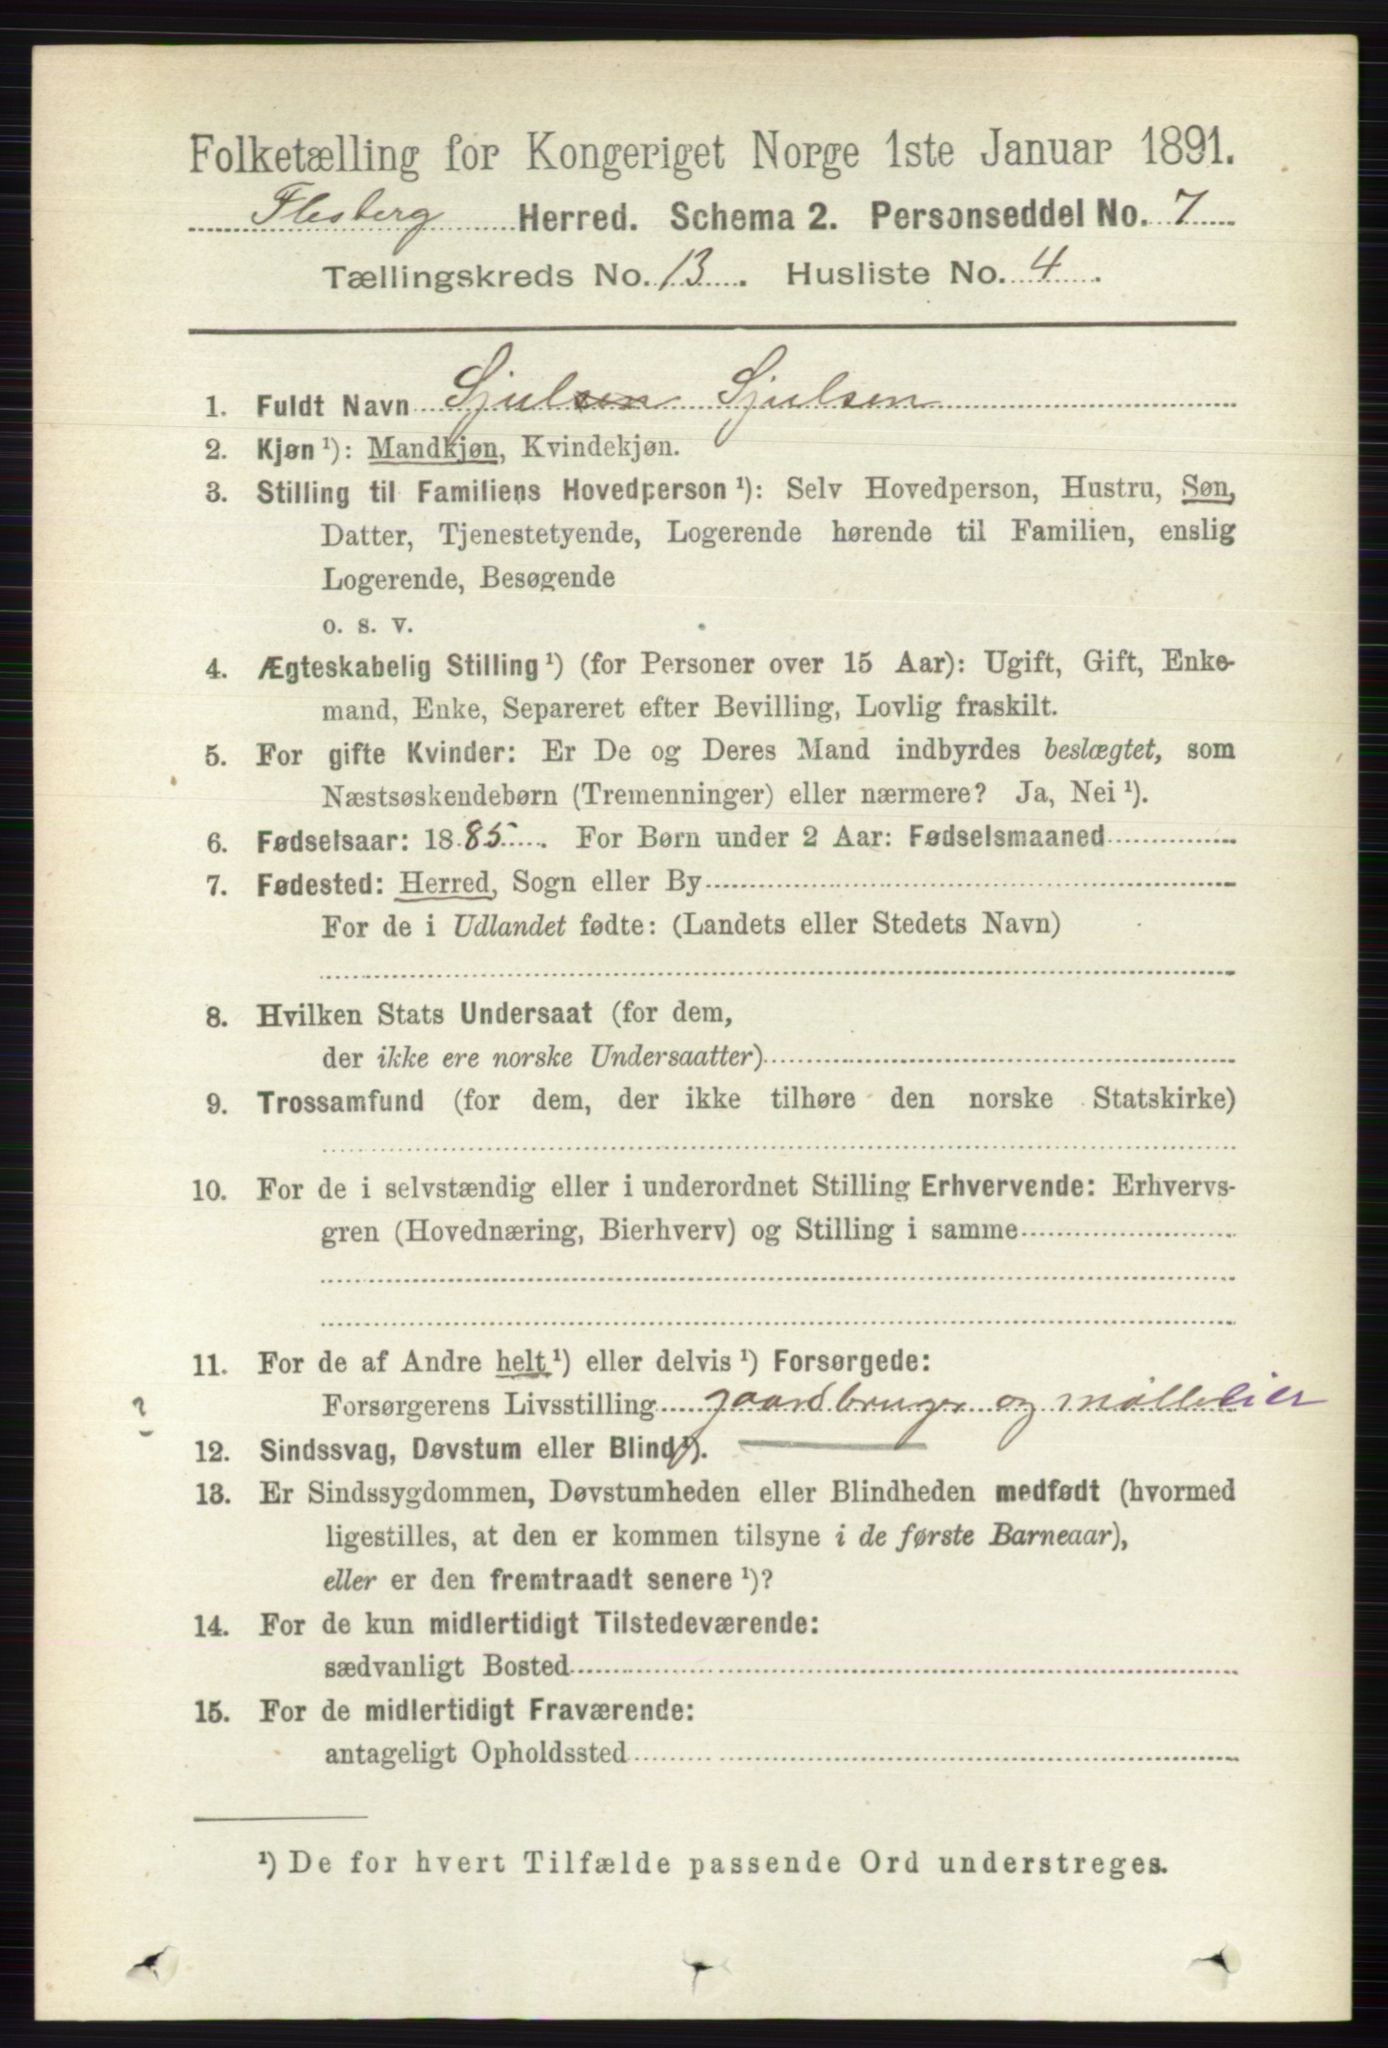 Folketælling for Kongeriget Norge 1ste Januar 1891.
Flesberg Herred. Schema 2. Personseddel No. 7
Tællingskreds No. 13. Husliste No. 4.
1. Fuldt Navn Sjulsen Sjulsen
2. Kjøn ¹): Mandkjøn, Kvindekjøn.
3. Stilling til Familiens Hovedperson ¹): Selv Hovedperson, Hustru, Søn,
Datter, Tjenestetyende, Logerende hørende til Familien, enslig
Logerende, Besøgende
o. s. v.
4. Ægteskabelig Stilling ¹) (for Personer over 15 Aar): Ugift, Gift, Enke-
mand, Enke, Separeret efter Bevilling, Lovlig fraskilt.
5. For gifte Kvinder: Er De og Deres Mand indbyrdes beslægtet, som
Næstsøskendebørn (Tremenninger) eller nærmere? Ja, Nei ¹).
6. Fødselsaar: 1885. For Børn under 2 Aar: Fødselsmaaned
7. Fødested: Herred, Sogn eller By
For de i Udlandet fødte: (Landets eller Stedets Navn)
8. Hvilken Stats Undersaat (for dem,
der ikke ere norske Undersaatter)
9. Trossamfund (for dem, der ikke tilhøre den norske Statskirke)
10. For de i selvstændig eller i underordnet Stilling Erhvervende: Erhvervs-
gren (Hovednæring, Bierhverv) og Stilling i samme
11. For de af Andre helt ¹) eller delvis ¹) Forsørgede:
? Forsørgerens Livsstilling gaardbruger og mølleeier
12. Sindssvag, Døvstum eller Blind ¹).
13. Er Sindssygdommen, Døvstumheden eller Blindheden medfødt (hvormed
ligestilles, at den er kommen tilsyne i de første Barneaar),
eller er den fremtraadt senere ¹)?
14. For de kun midlertidigt Tilstedeværende:
sædvanligt Bosted
15. For de midlertidigt Fraværende:
antageligt Opholdssted
¹) De for hvert Tilfælde passende Ord understreges.